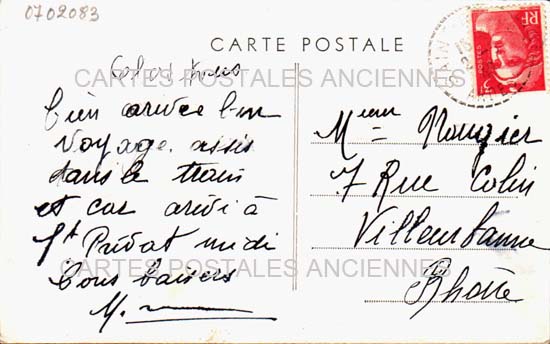 0702083
CARTE POSTALE
RF
POSTES
CARTES POSTALES ANCIENNES
bien arrivée bon
voyage assis
dans le train
et car arrivé à
St Privat midi
bons baisers
M.
Rougier
7 Rue Colin
Villeurbanne
Rhône
CARTES POSTALES ANCIENNES